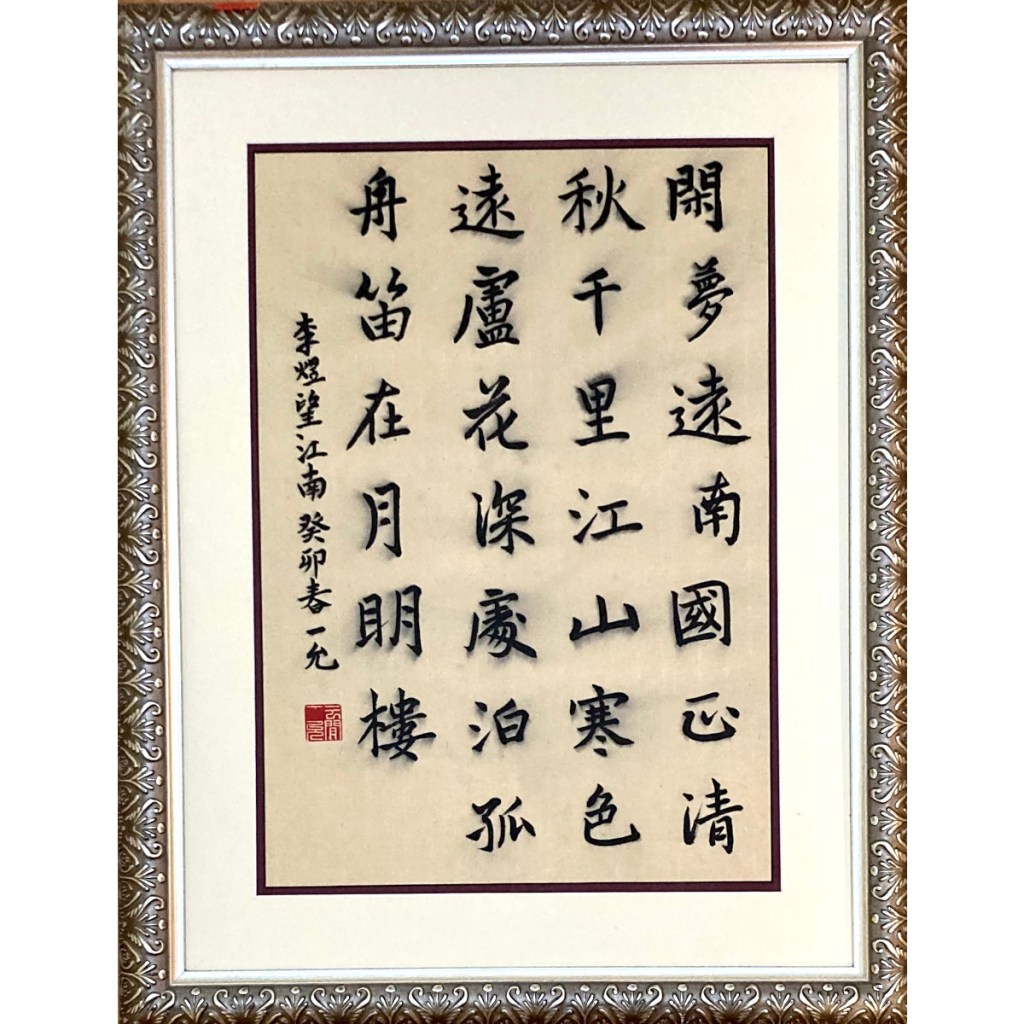 閑夢遠南國正清
秋千里江山寒色
遠廬花深處泊孤
舟笛在月明樓
李煜望江南癸卯春一允